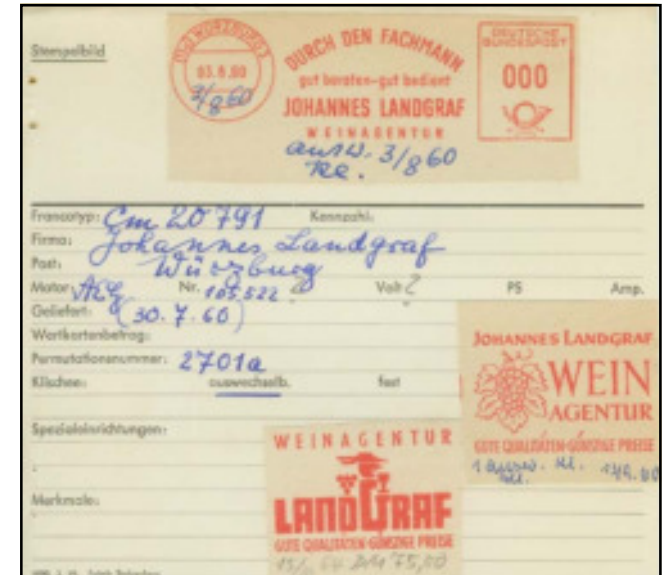 Stempelbild
WÜRZBURG 2
03.8.60
3/8 60
DURCH DEN FACHMANN
gut beraten-gut bedient
JOHANNES LANDGRAF
WEINAGENTUR
DEUTSCHE BUNDESPOST
000
ausw. 3/8 60
Francotyp: Cm 20791 Kennzahl:
Firma: Johannes Landgraf
Post: Würzburg
Motor: AEG Nr. 105,522 Volt: PS Amp.
Geliefert: (30.7.60)
Wertkartenbetrag:
Permutationsnummer: 2701a
Klischee: auswechselb. fest
Spezialeinrichtungen:
Merkmale:
JOHANNES LANDGRAF
WEIN
AGENTUR
GUTE QUALITÄTEN-GÜNSTIGE PREISE
1 ausw. Kl.
WEINAGENTUR
LANDGRAF
GUTE QUALITÄTEN-GÜNSTIGE PREISE
DM 75,00